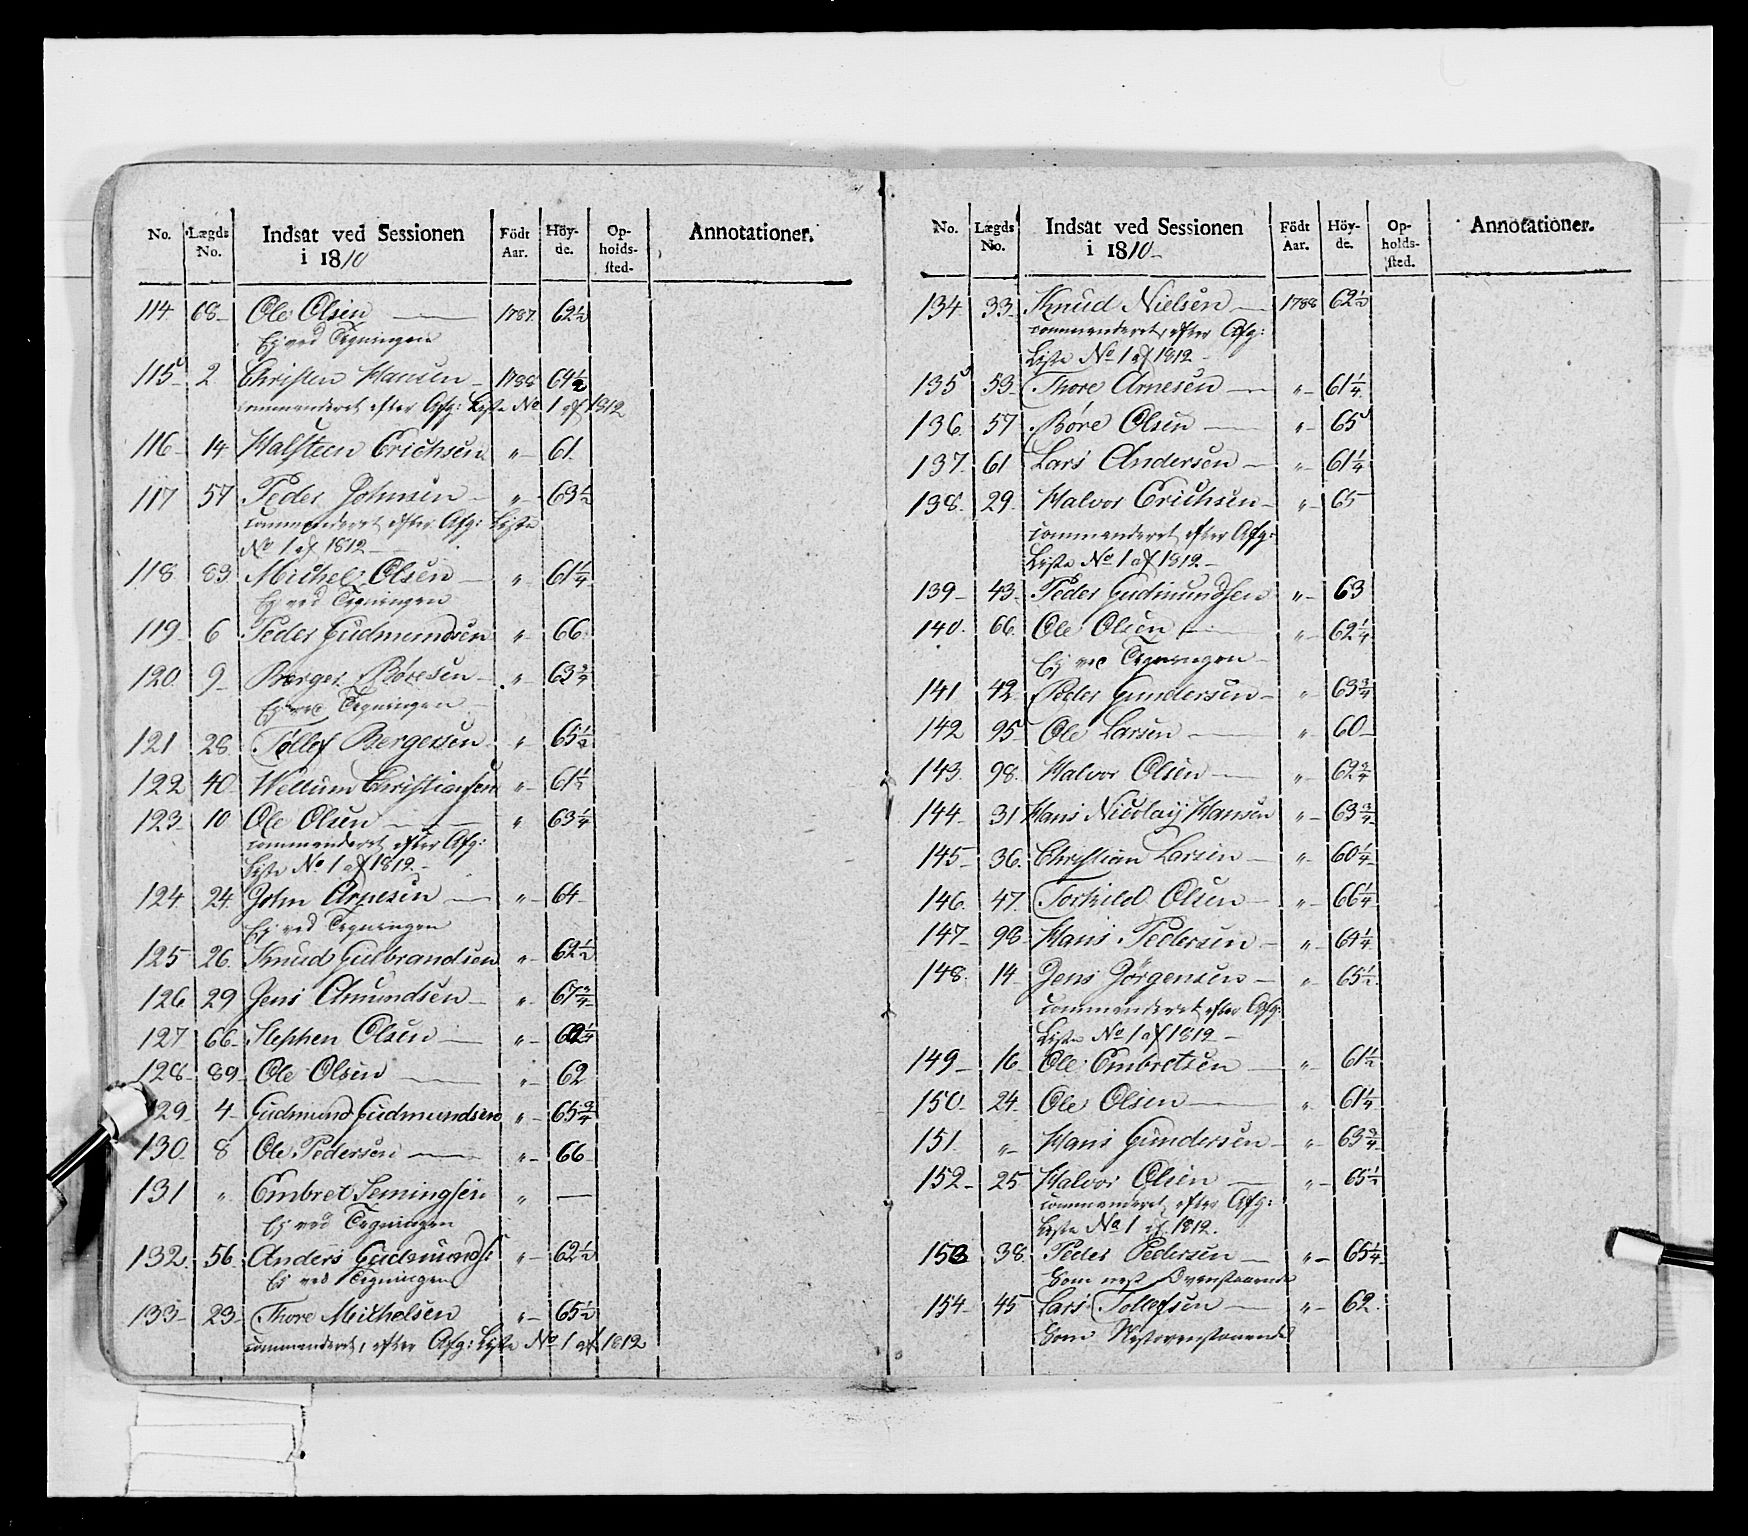 No. Lægds No. Indsat ved Sessionen i 1810 Födt Aar. Höyde. Opholdssted. Annotationer.
114. 68 Ole Olsen 1787. 62½
Ej ved Tegningen
115 2 Christen Hansen 1788 64½
commanderet efter Afg: Liste No 1 af 1812
116 14 Halsteen Erichsen " 61.
117 57 Peder Johnsen " 63½
commanderet efter Afg: Liste
No 1 af 1812
118 83 Michel Olsen " 61¼
Ej ved Tegningen
119 6 Peder Gudmundsen " 66
120 9 Berger Böresen " 63¾
Ej ved Tegningen
121 28 Tollef Bergersen " 65½
122 40 Wellum Christiansen " 61½
123 10 Ole Olsen " 63¼
commanderet efter Afg:
Liste No 1 af 1812
124 24 John Arnesen " 64
Ej ved Tegningen
125 26 Knud Gulbrandsen " 62½
126 29 Jens Amundsen " 67¾
127 66 Stephen Olsen " 62¼
128 89 Ole Olsen " 62
129 4 Gudmund Gudmundsen " 65¾
130. 8 Ole Pedersen " 66
131 " Embret Semingsen " —
Ej ved Tegningen
132. 56 Anders Gudmunds " 62½
Ej ved Tegningen
133 23 Thore Michelsen " 65½
commanderet, efter Afg: Liste No 1 af 1812
No. Lægds No. Indsat ved Sessionen i 1810 Födt Aar. Höyde. Opholdssted. Annotationer.
134. 33 Knud Nielsen 1788 62½
commanderet, efter Afg:
Liste No 1 af 1812
135 53 Thore Arnesen " 61¼
136. 57 Böre Olsen " 65
137. 61 Lars Andersen " 61¼
138. 29. Halvor Erichsen " 65
commanderet efter Afg:
Liste No 1 af 1812
139 43 Peder Gudmundsen " 63
140. 66. Ole Olsen " 62¼
Ej ved Tegningen
141 42 Peder Gundersen " 63¾
142 95 Ole Larsen " 60
143. 98. Halvor Olsen " 62¾
144 31 Hans Nicolay Hansen " 63¾
145 36. Christian Larsen " 60¼
146. 47. Torkild Olsen " 66¼
147 98 Hans Pedersen " 64¼
148. 14 Jens Jörgensen " 65½
commanderet efter Afg:
Liste No 1 af 1812
149 16 Ole Embretsen " 61½
150 24 Ole Olsen " 61¼
151. " Hans Gundersen " 63¾
152 25 Halvor Olsen " 65½
commanderet, efter Afg:
Liste No 1 af 1812.
153 38. Peder Pedersen " 65¼
Som nest Ovenstaaende
154 45 Lars Tollefsen " 62.
Som Nestovenstaaende